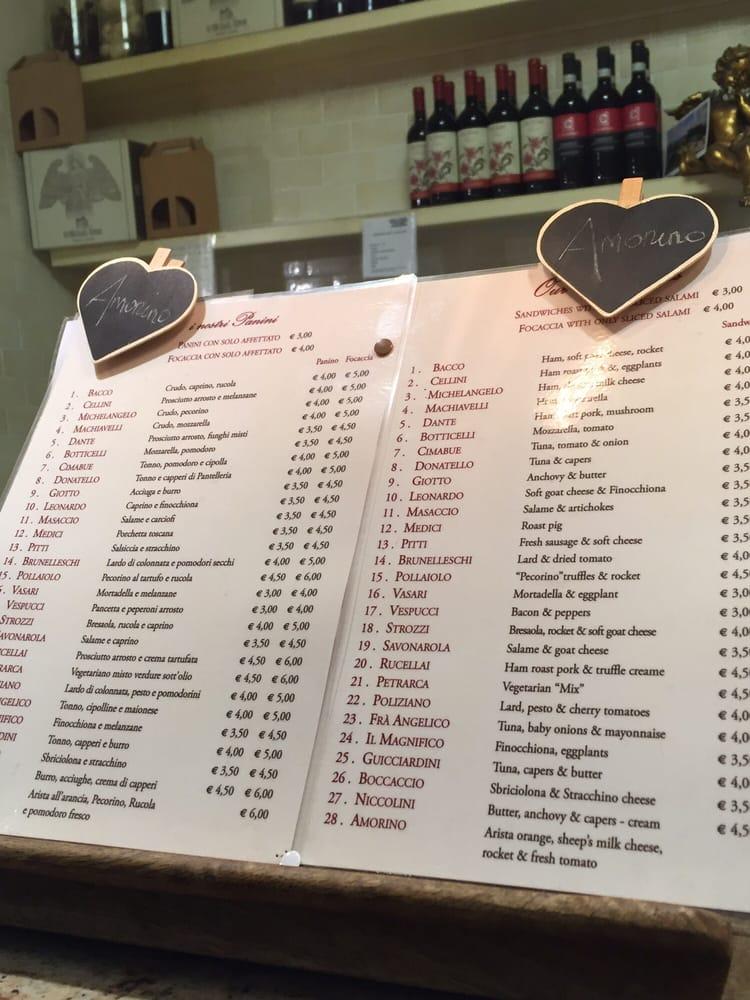 Amorino
Amorino
i nostri Panini
PANINI CON SOLO AFFETTATO € 3,00
FOCACCIA CON SOLO AFFETTATO € 4,00
Panino Focaccia
1. BACCO Crudo, caprino, rucola € 4,00 € 5,00
2. CELLINI Prosciutto arrosto e melanzane € 4,00 € 5,00
3. MICHELANGELO Crudo, pecorino € 4,00 € 5,00
4. MACHIAVELLI Crudo, mozzarella € 4,00 € 5,00
5. DANTE Prosciutto arrosto, funghi misti € 3,50 € 4,50
6. BOTTICELLI Mozzarella, pomodoro € 3,50 € 4,50
7. CIMABUE Tonno, pomodoro e cipolla € 4,00 € 5,00
8. DONATELLO Tonno e capperi di Pantelleria € 4,00 € 5,00
9. GIOTTO Acciuga e burro € 3,50 € 4,50
10. LEONARDO Caprino e finocchiona € 3,50 € 4,50
11. MASACCIO Salame e carciofi € 3,50 € 4,50
12. MEDICI Porchetta toscana € 3,50 € 4,50
13. PITTI Salsiccia e stracchino € 3,50 € 4,50
14. BRUNELLESCHI Lardo di colonnata e pomodori secchi € 4,00 € 5,00
15. POLLAIOLO Pecorino al tartufo e rucola € 4,50 € 6,00
VASARI Mortadella e melanzane € 3,00 € 4,00
VESPUCCI Pancetta e peperoni arrosto € 3,00 € 4,00
STROZZI Bresaola, rucola e caprino € 4,00 € 5,00
SAVONAROLA Salame e caprino € 3,50 € 4,50
CELLAI Prosciutto arrosto e crema tartufata € 4,50 € 6,00
RARCA Vegetariano misto verdure sott'olio € 4,50 € 6,00
ZIANO Lardo di colonnata, pesto e pomodorini € 4,00 € 5,00
NGELICO Tonno, cipolline e maionese € 4,00 € 5,00
NIFICO Finocchiona e melanzane € 3,50 € 4,50
DINI Tonno, capperi e burro € 4,00 € 5,00
Sbriciolona e stracchino € 3,50 € 4,50
Burro, acciughe, crema di capperi € 4,50 € 6,00
Arista all'arancia, Pecorino, Rucola
e pomodoro fresco € 6,00
Our
SANDWICHES WITH ONLY SLICED SALAMI € 3,00
FOCACCIA WITH ONLY SLICED SALAMI € 4,00
Sandw
1. BACCO Ham, soft cheese, rocket
2. CELLINI Ham roast pork &, eggplants
3. MICHELANGELO Ham, milk cheese
4. MACHIAVELLI
5. DANTE pork, mushroom
6. BOTTICELLI Mozzarella, tomato
7. CIMABUE Tuna, tomato & onion
8. DONATELLO Tuna & capers
9. GIOTTO Anchovy & butter
10. LEONARDO Soft goat cheese & Finocchiona
11. MASACCIO Salame & artichokes
12. MEDICI Roast pig
13. PITTI Fresh sausage & soft cheese
14. BRUNELLESCHI Lard & dried tomato
15. POLLAIOLO "Pecorino"truffles & rocket
16. VASARI Mortadella & eggplant
17. VESPUCCI Bacon & peppers
18. STROZZI Bresaola, rocket & soft goat cheese
19. SAVONAROLA Salame & goat cheese
20. RUCELLAI Ham roast pork & truffle creame
21. PETRARCA Vegetarian "Mix"
22. POLIZIANO Lard, pesto & cherry tomatoes
23. FRÀ ANGELICO Tuna, baby onions & mayonnaise
24. IL MAGNIFICO Finocchiona, eggplants
25. GUICCIARDINI Tuna, capers & butter
26. BOCCACCIO Sbriciolona & Stracchino cheese
27. NICCOLINI Butter, anchovy & capers - cream
28. AMORINO Arista orange, sheep's milk cheese,
rocket & fresh tomato